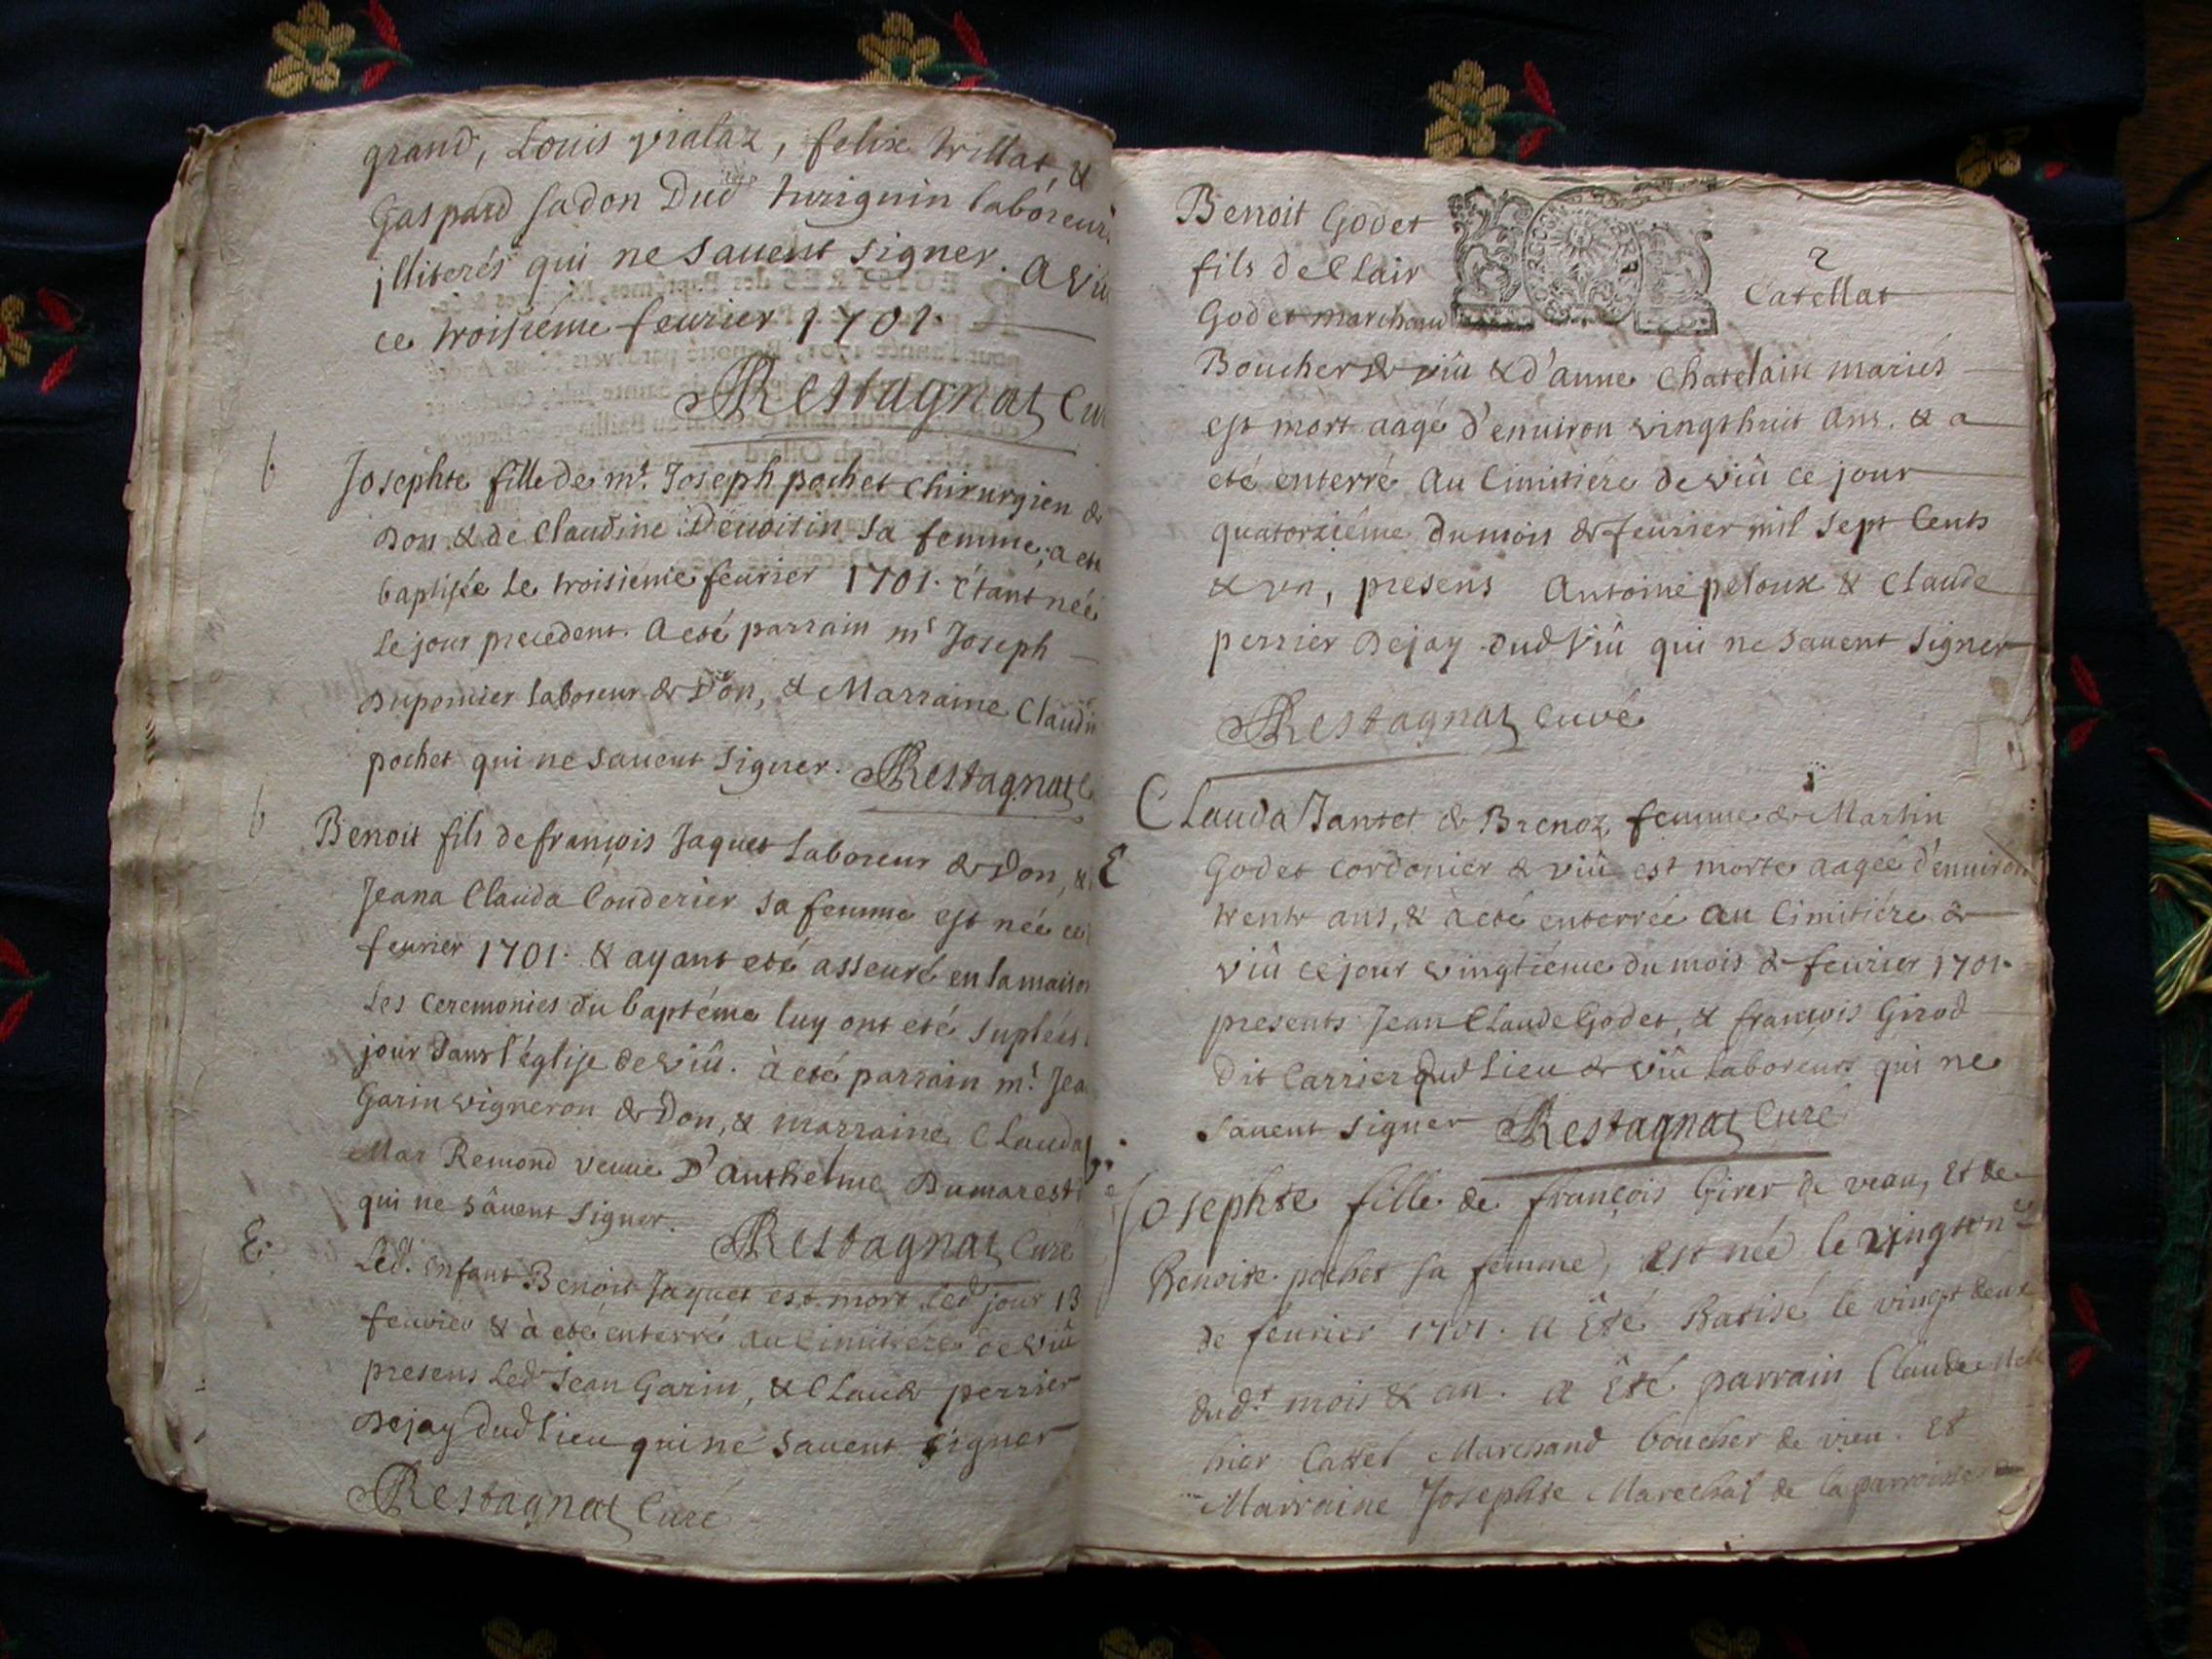 grand, Louis vialaz, felix trillat, &
Gaspard sadon dud huriguin laboreurs
illiterés qui ne sauent signer. A viû
ce troisiéme feurier 1701.
Restagnat Cu
b
Josephte fille de mr. Joseph pochet chirurgien de
Don & de Claudine Deuoisin sa femme, a eté
baptisée le troisieme feurier 1701. étant née
le jour precedent. A eté parrain mr Joseph
Dupomier laboreur de Don, & Marraine Claudin
pochet qui ne sauent signer. Restagnat C
b
Benoit fils de françois Jaquet laboreur de Don, &
Jeana Clauda Couderier sa femme est née ce
feurier 1701. & ayant eté asseuré en la maison
les ceremonies du baptéme luy ont eté supleés
jour dans l'église de viû. à eté parrain mr. Jea
Garin vigneron de Don, & marraine Clauda
Mar Remond veuue D'anthelme Dumarest
qui ne sâuent signer. Restagnat Curé
E.
Led. enfant Benoit Jaquet est mort led jour 13
feurier & à eté enterré au Cimitiére de viû
presens led Jean Garin, & Claude perrier
Dejay dud lieu qui ne sauent signer
Restagnat Curé
Benoit Godet
fils de Clair
Godet marchand
2
Catellat
Boucher de viû & d'anne Chatelain mariés
est mort aagé d'enuiron vingt huit ans. & a
eté enterré au Cimitiére de viû ce jour
quatorziéme du mois de feurier mil sept Cents
& vn, presens Antoine peloux & Claude
perrier Dejay dud viû qui ne sauent signer
Restagnat Curé
Clauda Jantet de Brenoz femme de Martin
E
Godet Cordonier de viû est morte aagée d'enuiron
trente ans, & à eté enterrée au Cimitiére de
viû ce jour vingtiéme du mois de feurier 1701.
presents Jean Claude Godet, & françois Girod
dit Carrier dud lieu de viû laboreurs qui ne
sauent signer Restagnat Curé
Josephte fille de françois Girer de veau, et de
Benoite pochet sa femme, est née le vingt un
de féurier 1701. a été Batisé le vingt deux
dudt mois & an. a été parrain Claude
Cattel Marchand boucher de vieu. Et
Marraine Josephte Marechal de la parroisse